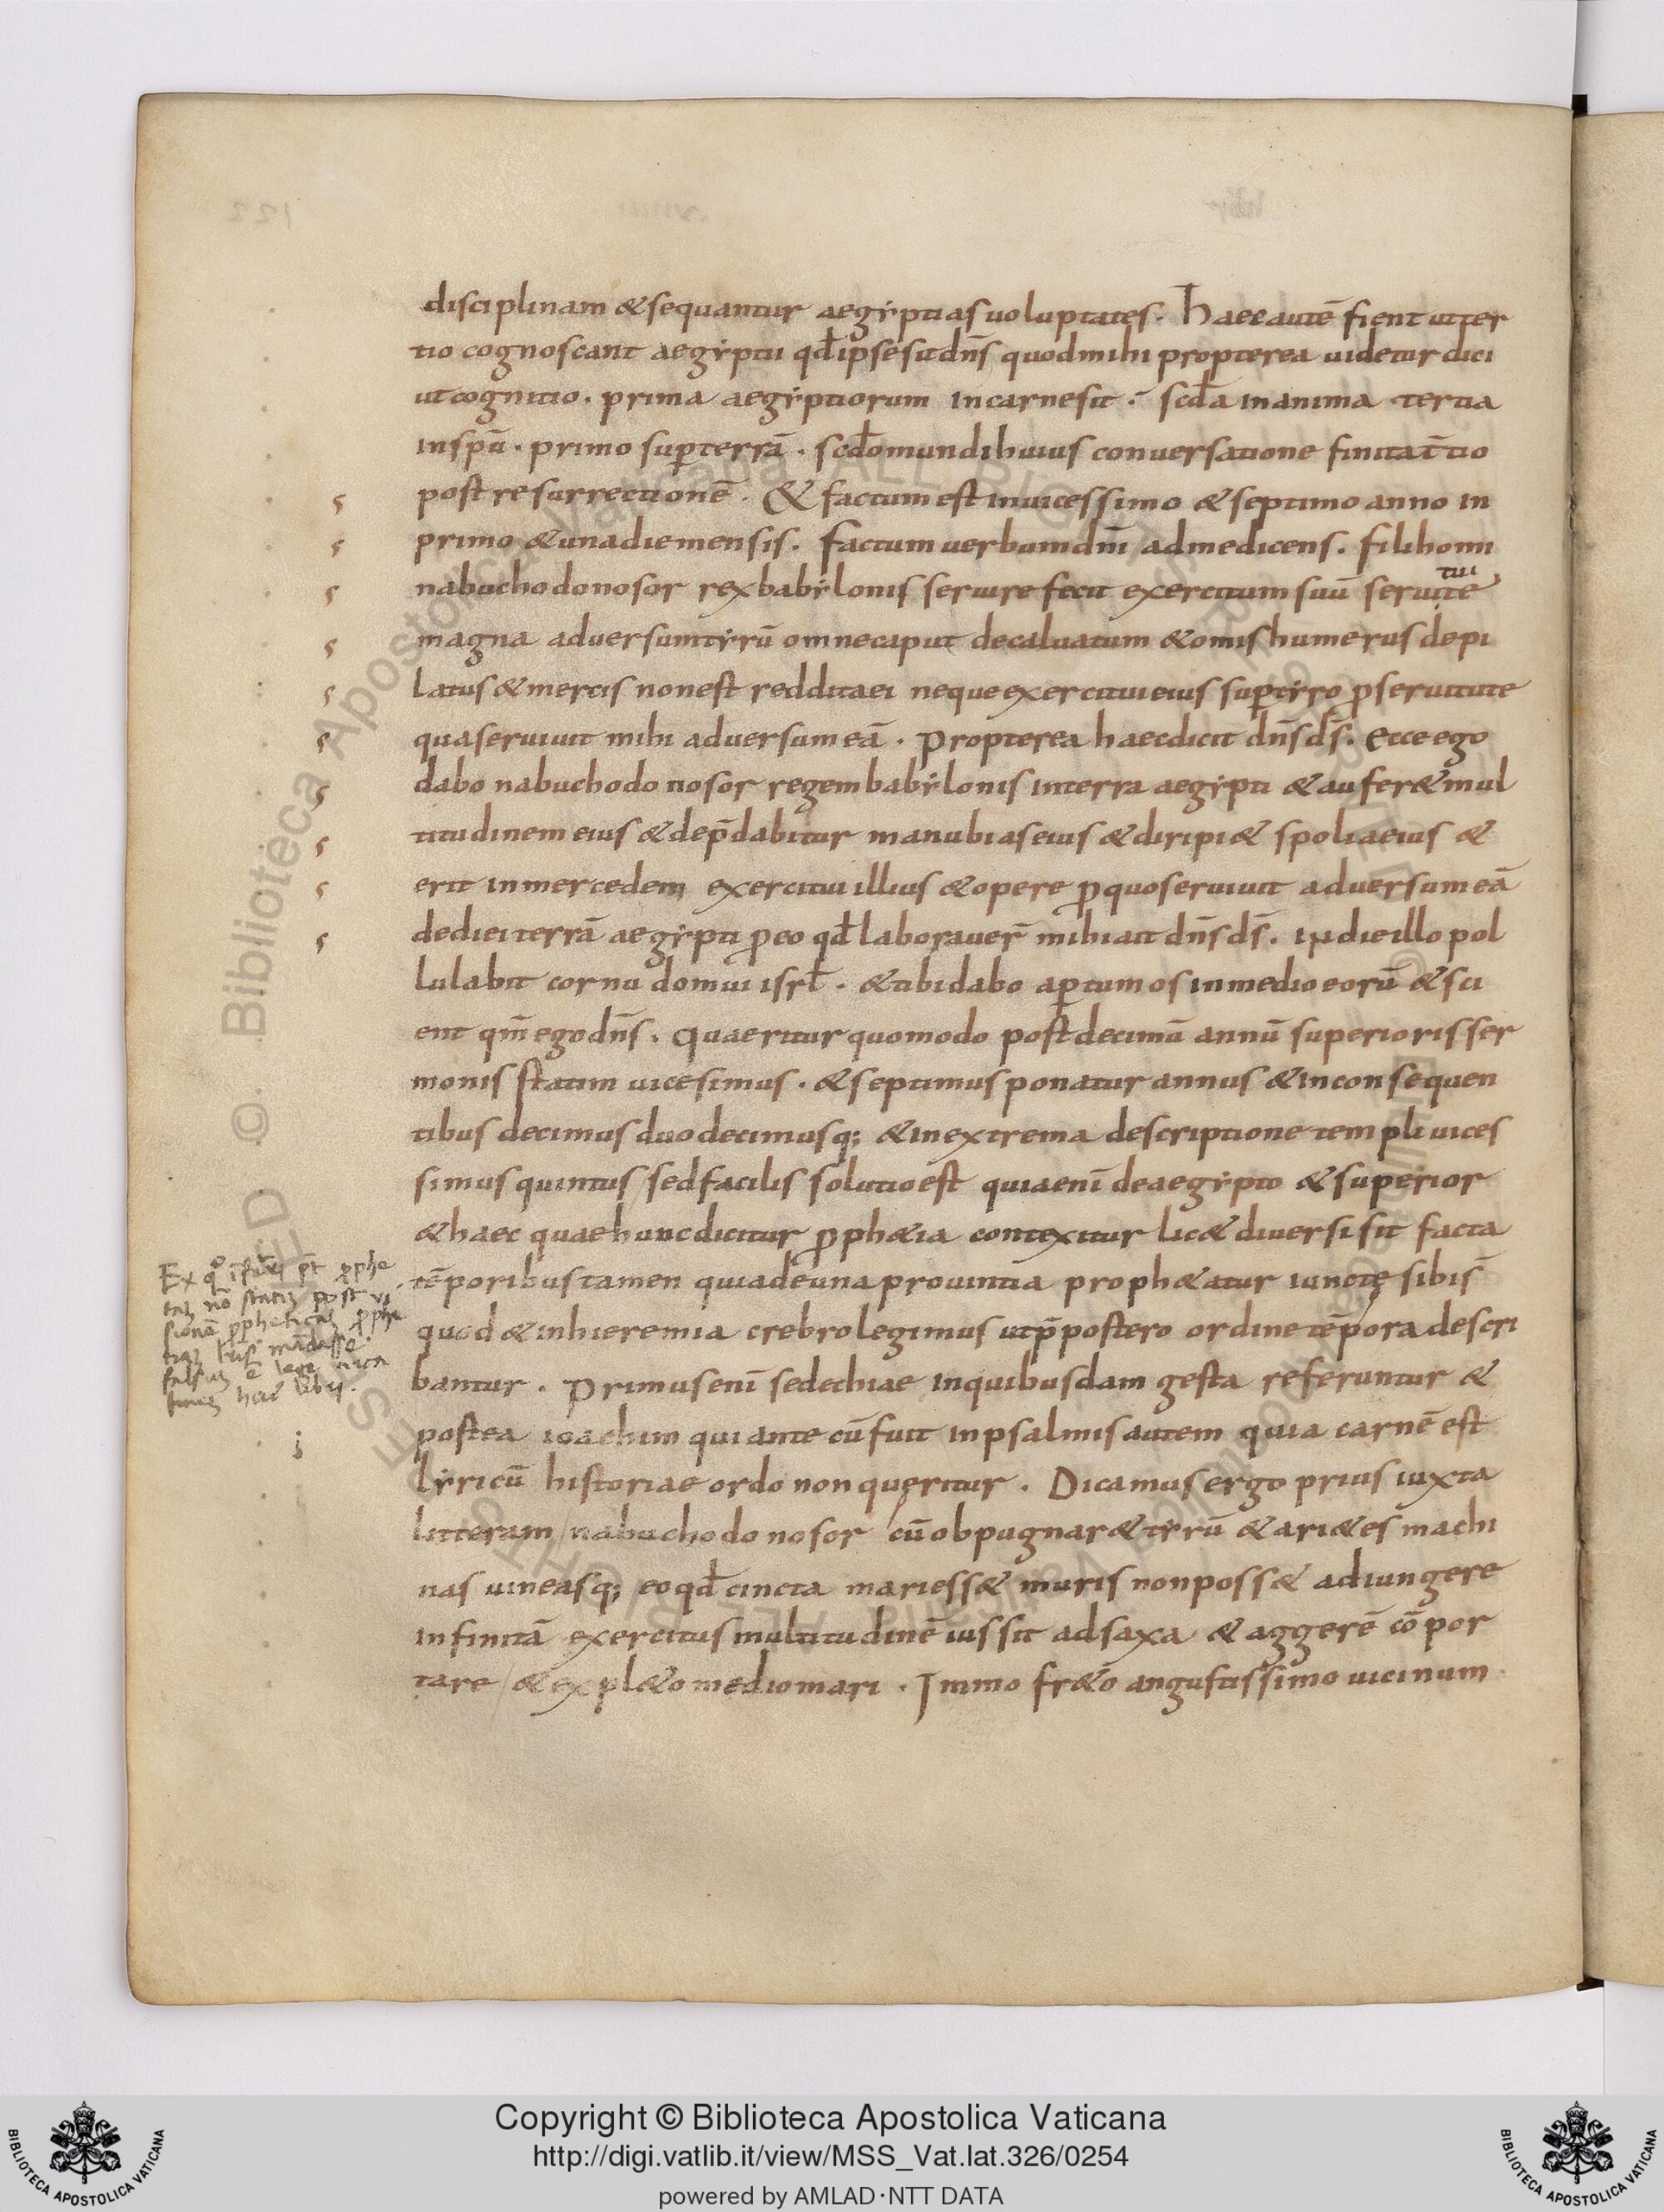 disciplinam & sequantur aegẏptias uoluptates. Haec autē fient ut ter
tio cognoscant aegẏptii qđ ipse sit dn̄s quod mihi propterea uidetur dici
ut cognitio. prima aegẏptiorum in carne sit. scđa in anima tertia
in spū. primo sup̱ terrā. scđo mundi huius conuersatione finita t̄tio
post resurrectionē. & factum est in uicessimo & septimo anno in
primo & una die mensis. factum uerbum dn̄i ad me dicens. fili homi
nabuchodonosor rex babẏlonis seruire fecit exercitum suū seruitute
magna aduersum tẏrū omne caput decaluatum & om̄is humerus depi
latus & mercis non est reddita ei neque exercitui eius sup̱ tẏro ꝓ seruitute
qua seruiuit mihi aduersum eā. propterea haec dicit dn̄s ds̄. ecce ego
dabo nabuchodonosor regem babẏlonis in terra aegẏpti & aufer& mul
titudinem eius & dep̄dabitur manubias eius & diripi& spolia eius &
erit in mercedem exercitui illius & opere ꝓ quo seruiuit aduersum eā
dedi ei terrā aegẏpti ꝓ eo qđ laborauer̄ mihi ait dn̄s ds̄. in die illo pol
lulabit cornu domui isrł. & tibi dabo ap̱tum os in medio eorū & sci
ent qm̄ ego dn̄s. quaeritur quomodo post decimū annū superioris ser
monis statim uicesimus. & septimus ponatur annus & in consequen
tibus decimus duodecimusq; & in extrema descriptione templi uices
simus quintus/ sed facilis solutio est quia enī de aegẏpto & superior
& haec quae hunc dicitur ꝓph&ia contexitur lic& diuersi sit facta
tēporibus tamen quia de una prouintia proph&atur iunctę sibi s̄
quod & in hieremia crebro legimus ut p̄postero ordine tēpora descri
bantur. primus enī sedechiae in quibusdam gesta referuntur &
postea ioachim qui ante cū fuit in psalmis autem quia carnē est
lẏricū historiae ordo non queritur. Dicamus ergo prius iuxta
litteram/ nabuchodonosor cū obpugnar& tẏrū & ari&es machi
nas uineasq; eo qđ cincta mari ess& muris non poss& adiungere
infinitā exercitus multitudinē iussit ad saxa & aggerē cōpor
tare/ & expl&o medio mari. Immo fr&o angustissimo uicinum
Copyright © Biblioteca Apostolica Vaticana
http://digi.vatlib.it/view/MSS_Vat.lat.326/0254
powered by AMLAD·NTT DATA
BIBLIOTECA APOSTOLICA VATICANA
BIBLIOTECA APOSTOLICA VATICANA